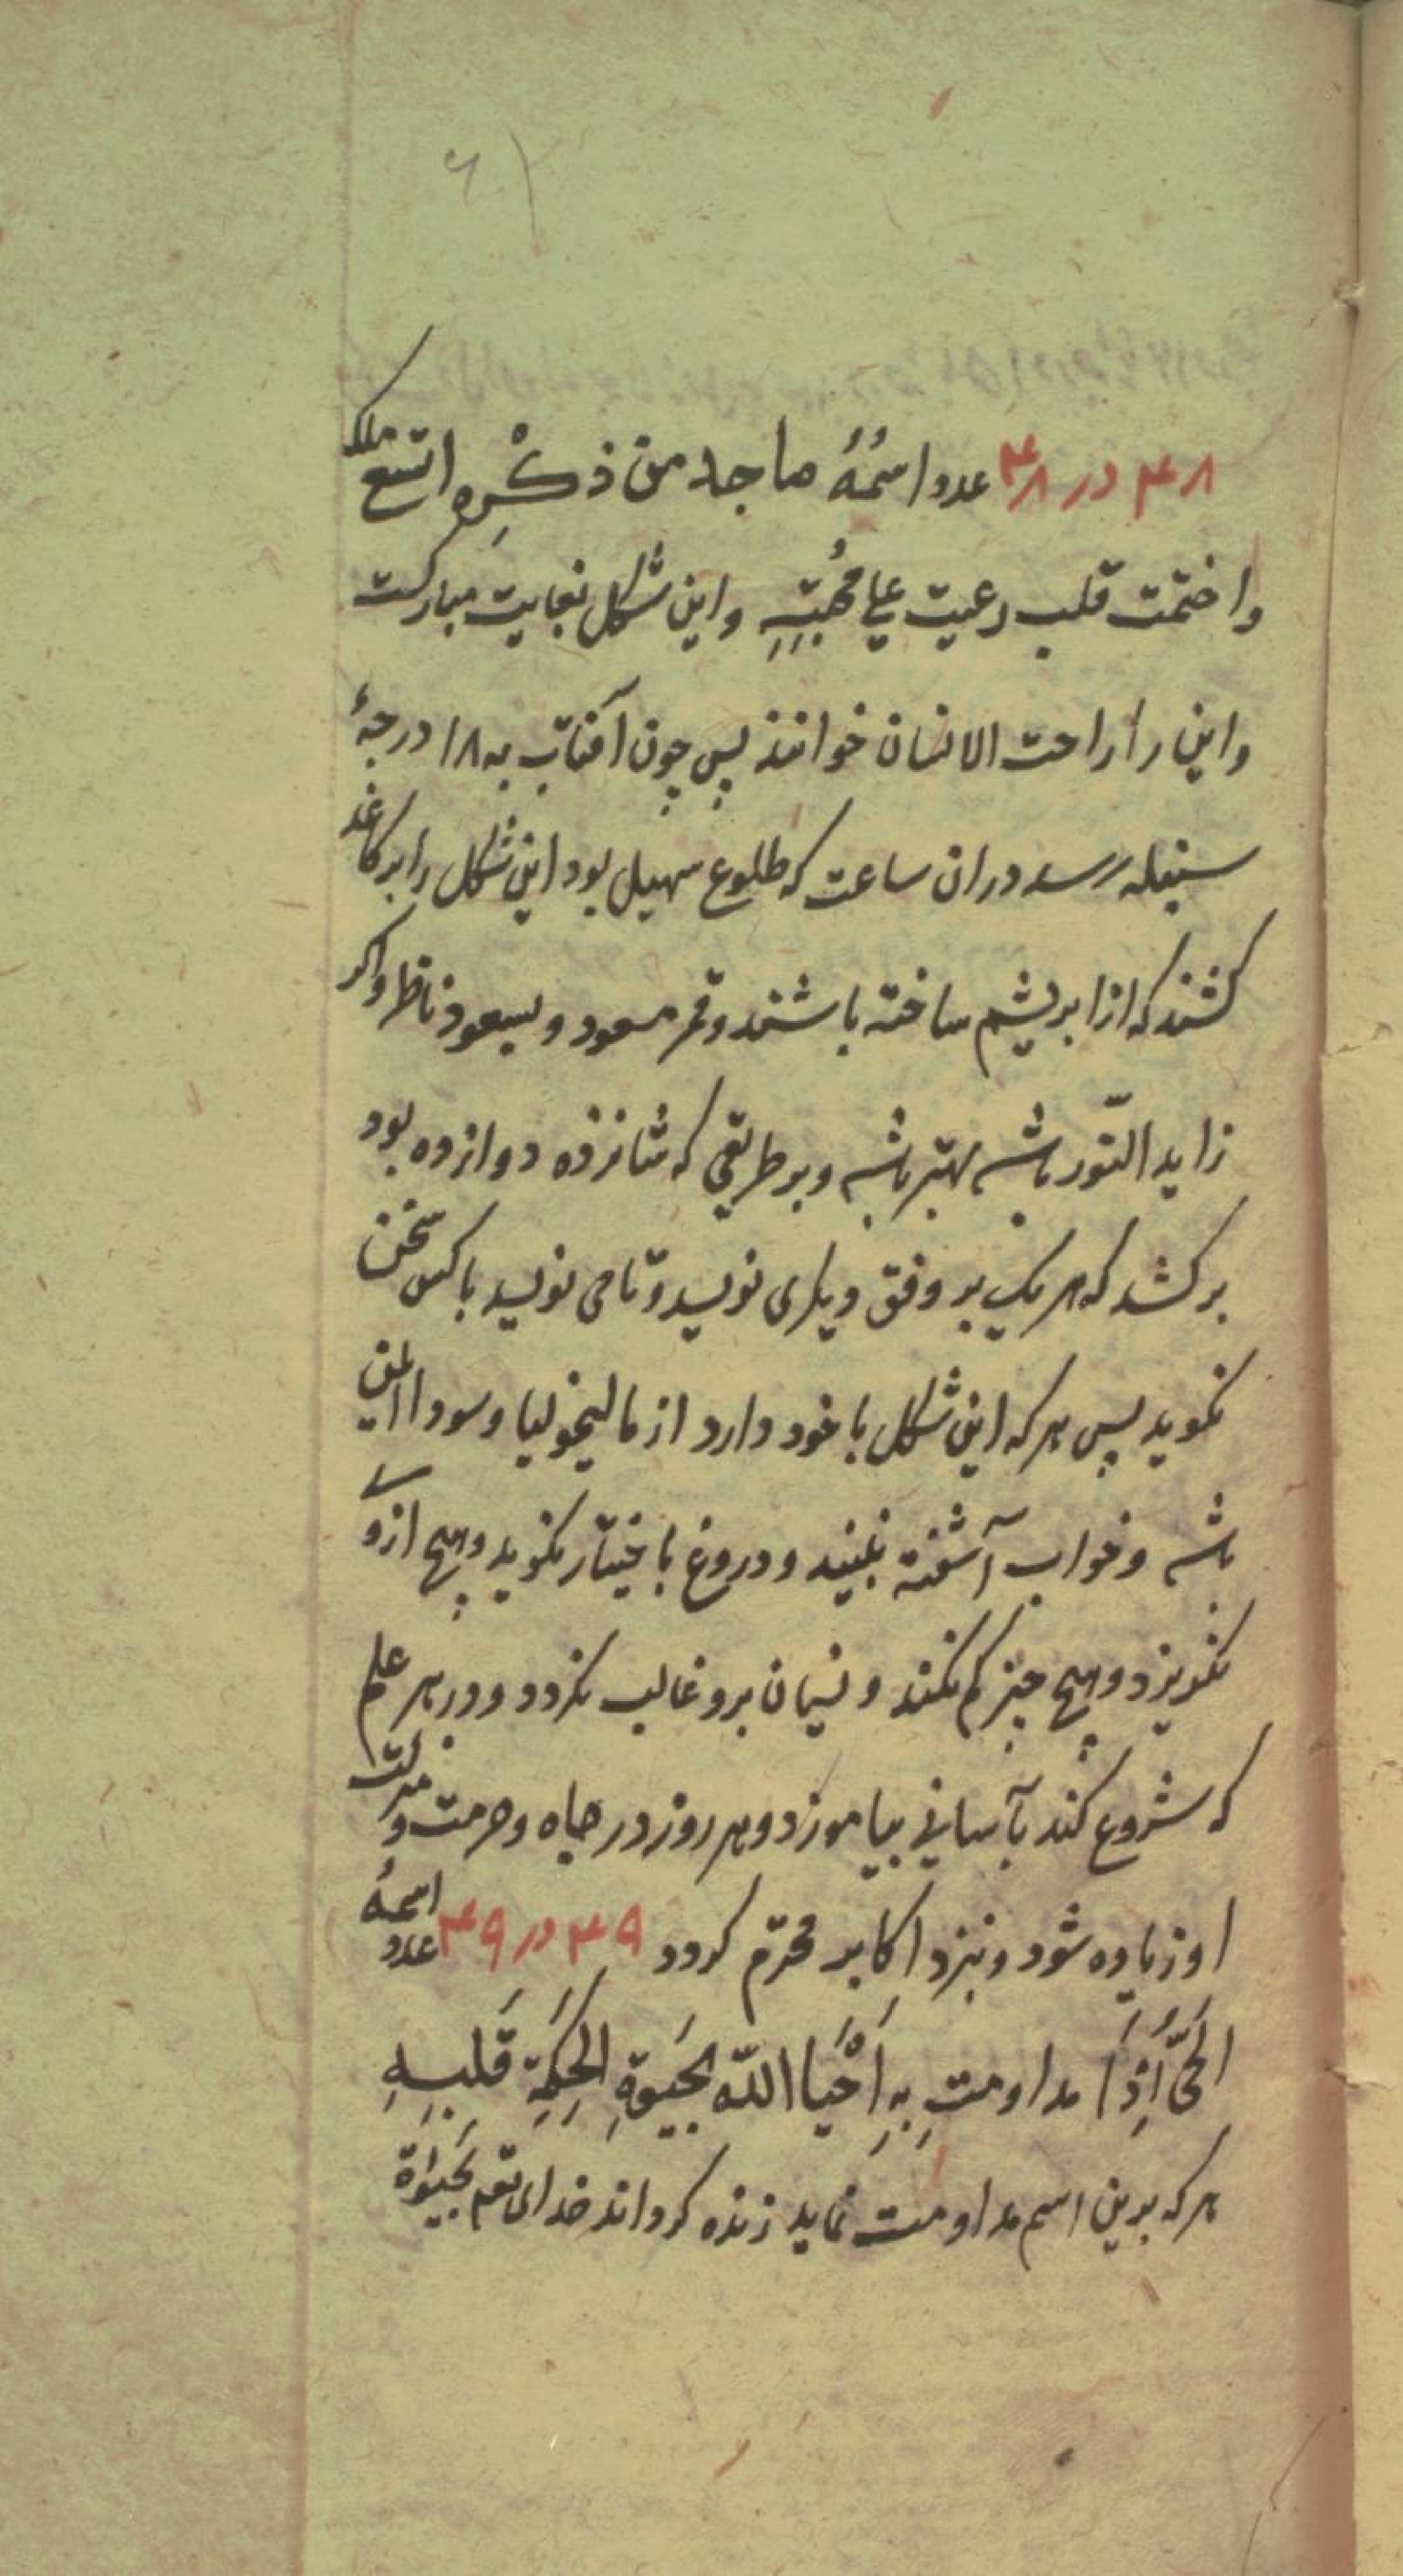 ۴۸ در ۴۸ عدد اسمُهُ ماجد من ذکْرِه اتسَع ملک
واختمت قلب رعیت علی محبُتِهِ واین شکل بغایت مبارکست
واین را راحت الانسان خوانند پس چون آفتاب به ۱۸ درجهٔ
سنبله رسد دران ساعت که طلوع سهیل بود این شکل را بر کاغد
کشند که از ابریشم ساخته باشند وقمر مسعود وبسعود ناظر واکر
زاید النّور باشد بهتر باشد وبر طریقی که شانزده دوازده بود
برکشد که هر یک بر وفق دیکری نویسد وتا می نویسد باکس سخن
نکوید پس هر که این شکل با خود دارد از مالیخولیا وسودا ایمن
باشد وخواب آشفته نبیند ودروغ باختیار نکوید وهیچ از وی
نکریزد وهیچ چیز کم نکند ونسیان برو غالب نکردد ودر هر علم
که شروع کند بآسانی بیاموزد وهر روز در جاه وحرمت ومنزلت
او زیاده شود ونزد اکابر محترم کردد ۴۹ در ۴۹ عدد اسمهُ
الحَیُّ اِذَا مداومتِ بِهِ اَحْیَا اللّه بحَیوةِ الحِکمَةِ قَلبِهِ
هر که برین اسم مداومت نماید زنده کرداند خدای تعم بحَیوٰة